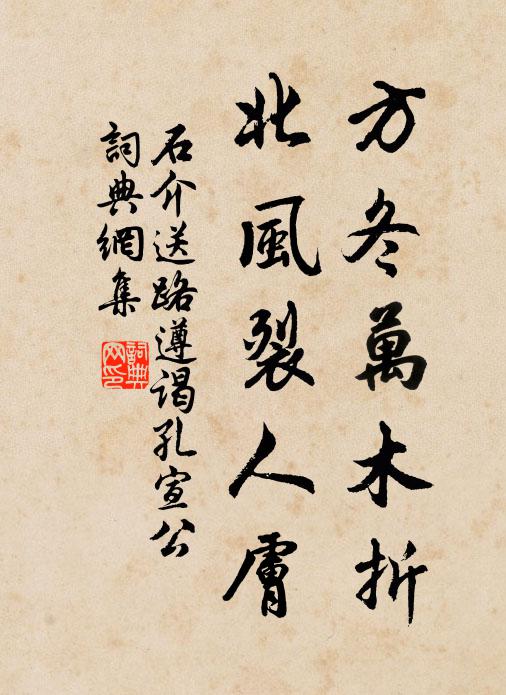 方冬萬木折
北風裂人膚
石介送路遵谒孔宣公
詞典網集
詞典網印